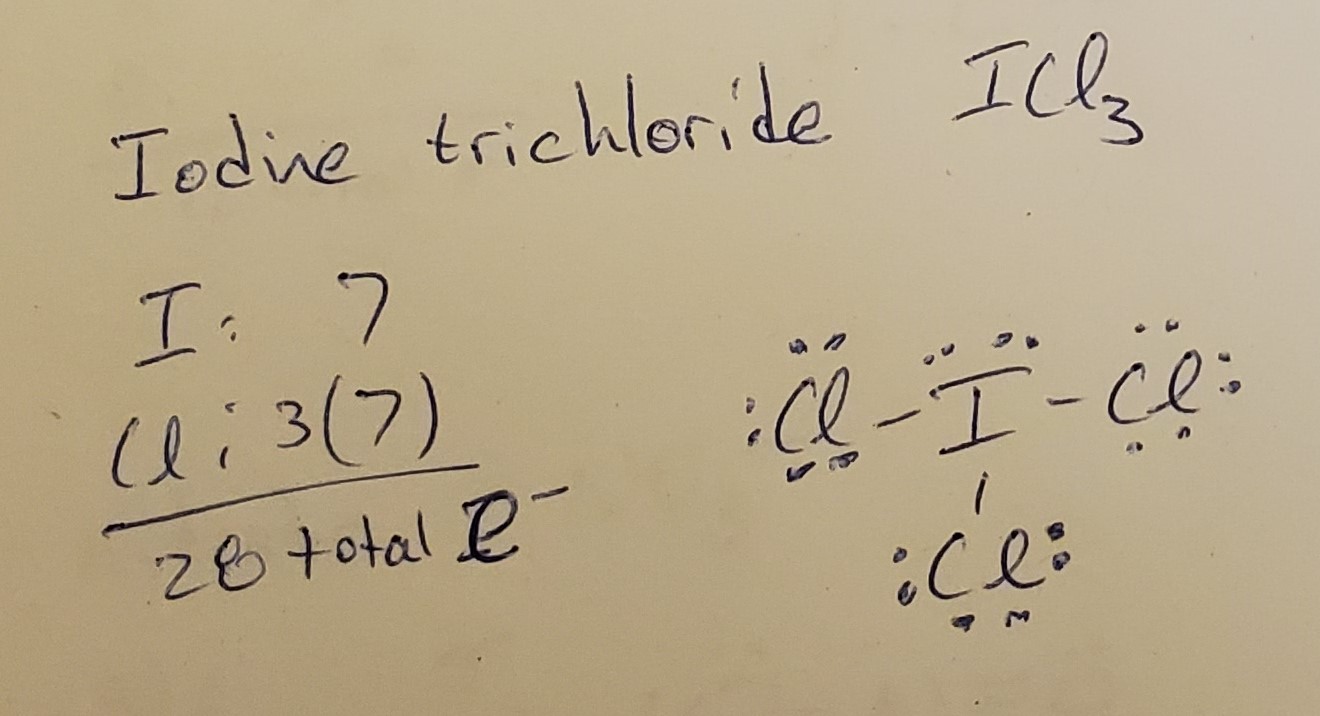 Iodine trichloride ICl₃
I: 7
Cl: 3(7)
28 total e⁻
:Cl - I - Cl:
|
:Cl: